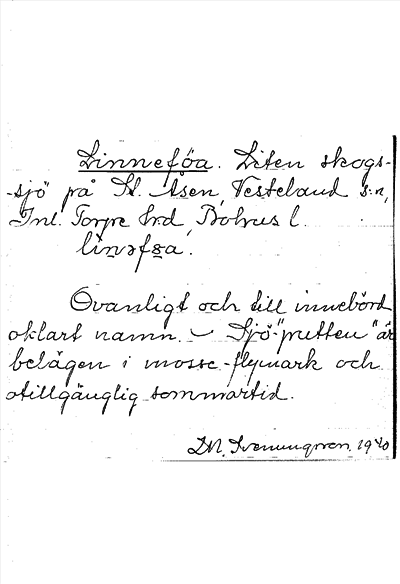 Linneföa. Liten skogs-
-sjö på St. Åsen, Vesteland s:n,
Inl. Torpe hrd, Bohus l.
linəfɞa.
Ovanligt och till innebörd
oklart namn. – Sjö-"putten" är
belägen i mosse-flymark och
otillgänglig sommartid.
LM. Svenungsson. 1940